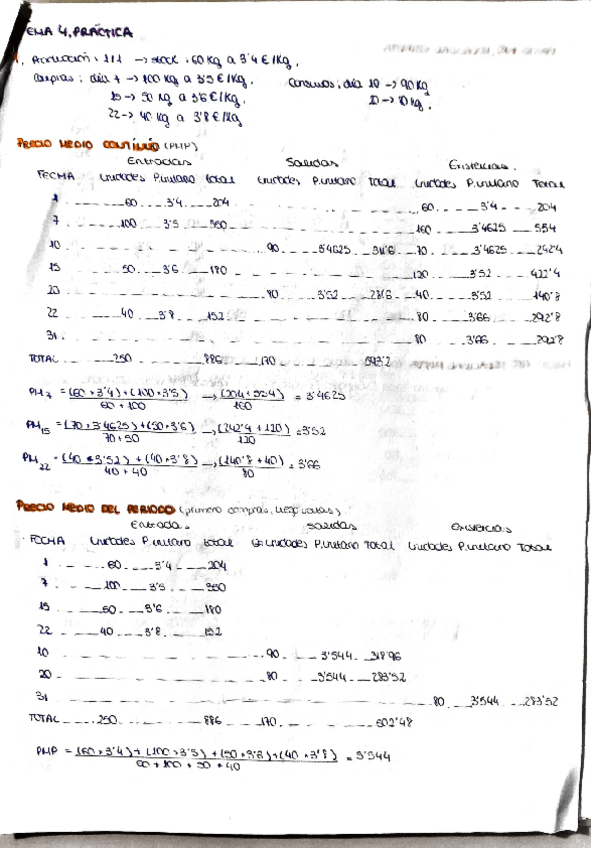 TEMA 4, PRÁCTICA
1. → stock: 60 Kg a 3'4 €/Kg.
Compras: día 7 → 100 Kg a 3'5 €/Kg. Consumos: día 10 → 90 Kg
15 → 50 Kg a 3'6 €/Kg. 20 → Kg.
22 → 40 Kg a 3'8 €/Kg
PRECIO MEDIO CONTÍNUO (PMP)
Entradas Salidas Existencias.
FECHA Unidades P.unitario total Unidades P.unitario Total Unidades P.unitario Total
1 60 3'4 204 60 3'4 204
7 100 3'5 350 160 3'4625 554
10 90 3'4625 311'6 70 3'4625 242'4
15 50 3'6 180 120 3'52 422'4
20 80 3'52 281'6 40 3'52 140'8
22 40 3'8 152 80 3'66 292'8
31 80 3'66 292'8
TOTAL 250 886 170 593'2
PM7 = (60 × 3'4) + (100 × 3'5) → = 3'4625
60 + 100 160
PM15 = (70 × 3'4625) + (50 × 3'6) → (242'4 + 120) = 3'52
70 + 50 120
PM22 = (40 × 3'52) + (40 × 3'8) → (140'8 + 40) = 3'66
40 + 40 80
PRECIO MEDIO DEL PERIODO (primero compras, luego ventas)
Entradas Salidas Existencias
FECHA Unidades P.unitario total Unidades P.unitario Total Unidades P.unitario Total
1 60 3'4 204
7 100 3'5 350
15 50 3'6 180
22 40 3'8 152
10 90 3'544 318'96
20 80 3'544 283'52
31 80 3'544 283'52
TOTAL 250 886 170 602'48
PMP = (60 × 3'4) + (100 × 3'5) + (50 × 3'6) + (40 × 3'8) = 3'544
60 + 100 + 50 + 40